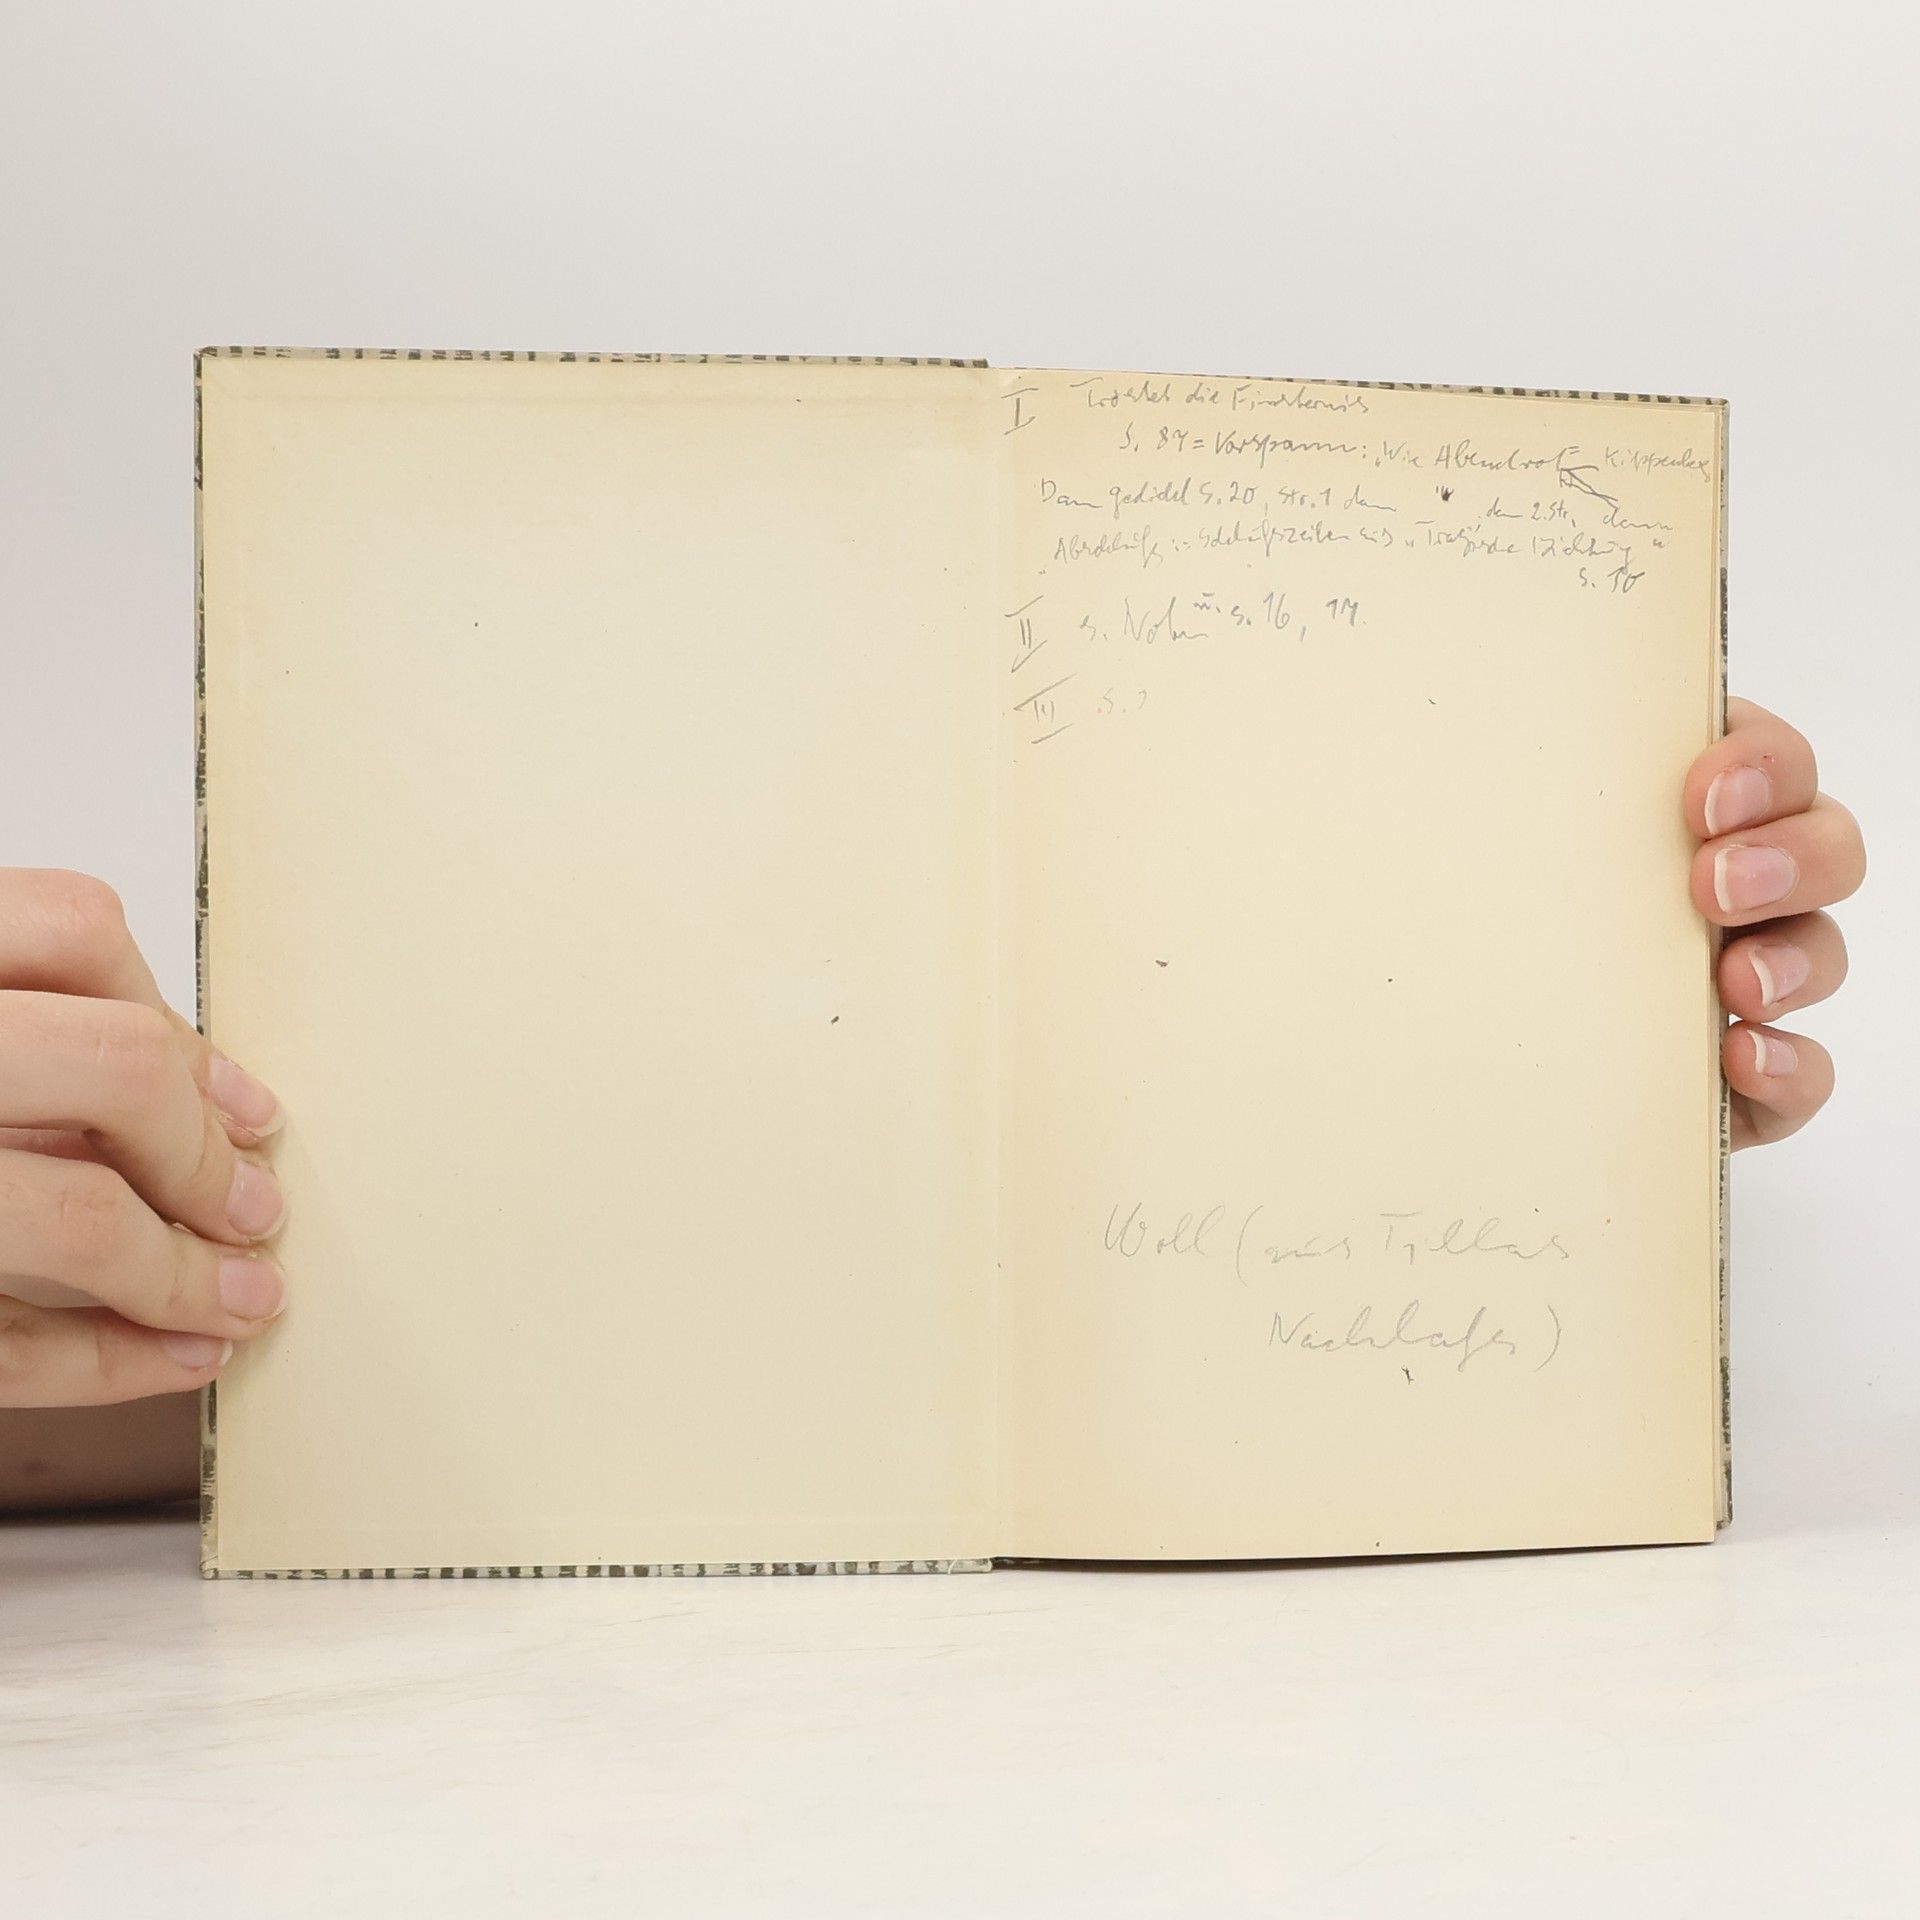 I Tröstet die Finsternis
S. 87 = Vorspann: "Wie Abendrot = Kippenberg
Dann Gedicht S. 20, Str. 1 dann " , dann 2. Str., dann
Schlußzeilen aus "Tragische Dichtung"
S. 50
II s. u. S. 16, 17.
III S. ?
Woll (aus Tillas
Nachlaß)